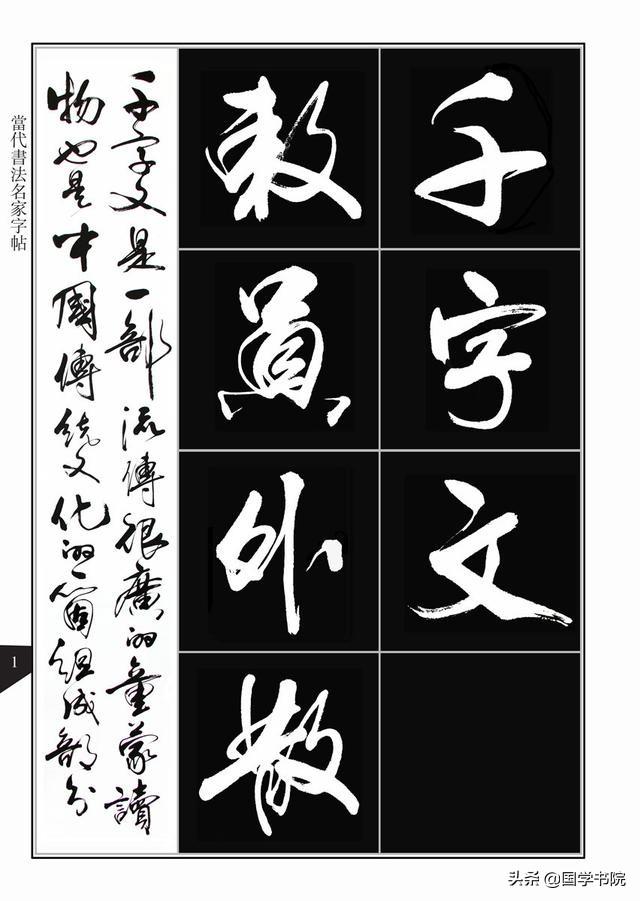 千字文
敕員外散
千字文是一部流傳很廣的童蒙讀
物也是中國傳統文化的一箇組成部分
當代書法名家字帖
1
头条 @国学书院